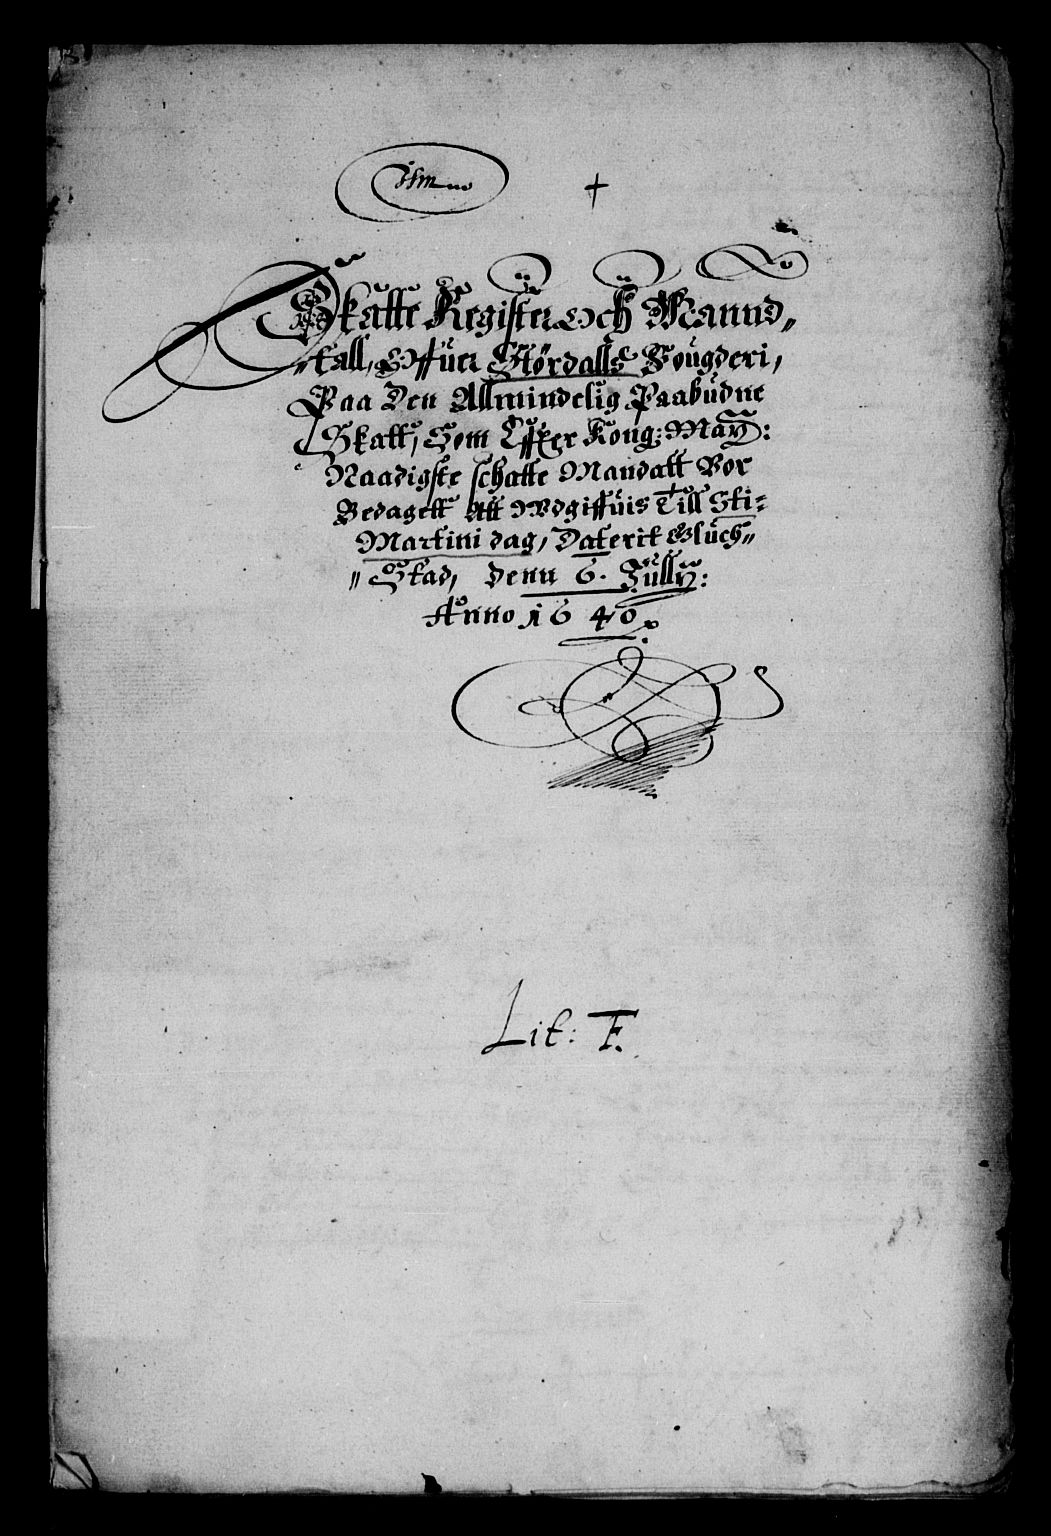 +
Skatte Register och Mannd„
„tall, Offuer Størdalls Fougderi,
Paa Den Allmindelig Paabudne
Skatt, Som Effter Kong: May:
Naadigste schatte Mandatt Vor
Bedagett Att Wdgiffuis Till Sti=
Martini dag, Daterit Gluch„
„Stad, denn 6. Jully:
Anno 1640
Lit: F.